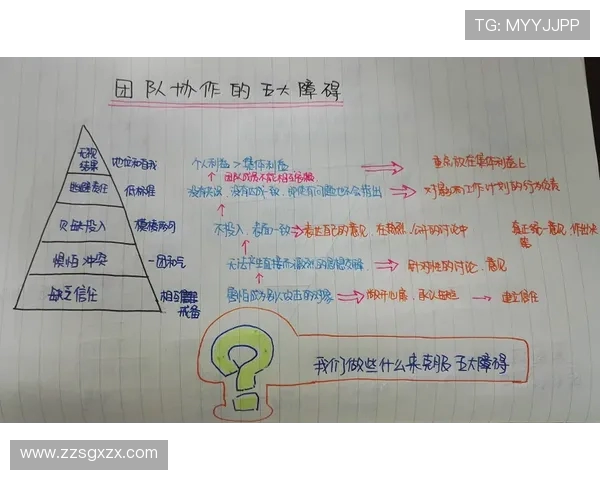 TG: MYYJJPP
团队协作的五大障碍
无视结果 地位和自我 个人利益>集体利益 重点放在集体利益上
团队成员不能相互
逃避责任 低标准 没有共识,没有达成一致,即使有问题也不会指出 对影响工作计划的行为负责
欠缺投入 模棱两可 不投入,表面一致 表达自己的意见,在热烈、公开的讨论中 真正统一意见,作出决策
惧怕冲突 一团和气 无法产生直接而激烈的思想交锋 针对性的讨论、意见
缺乏信任 相互戒备 害怕成为别人攻击的对象 敞开心扉,承认缺点 建立信任
我们做些什么来克服五大障碍
www.zzsgxzx.com